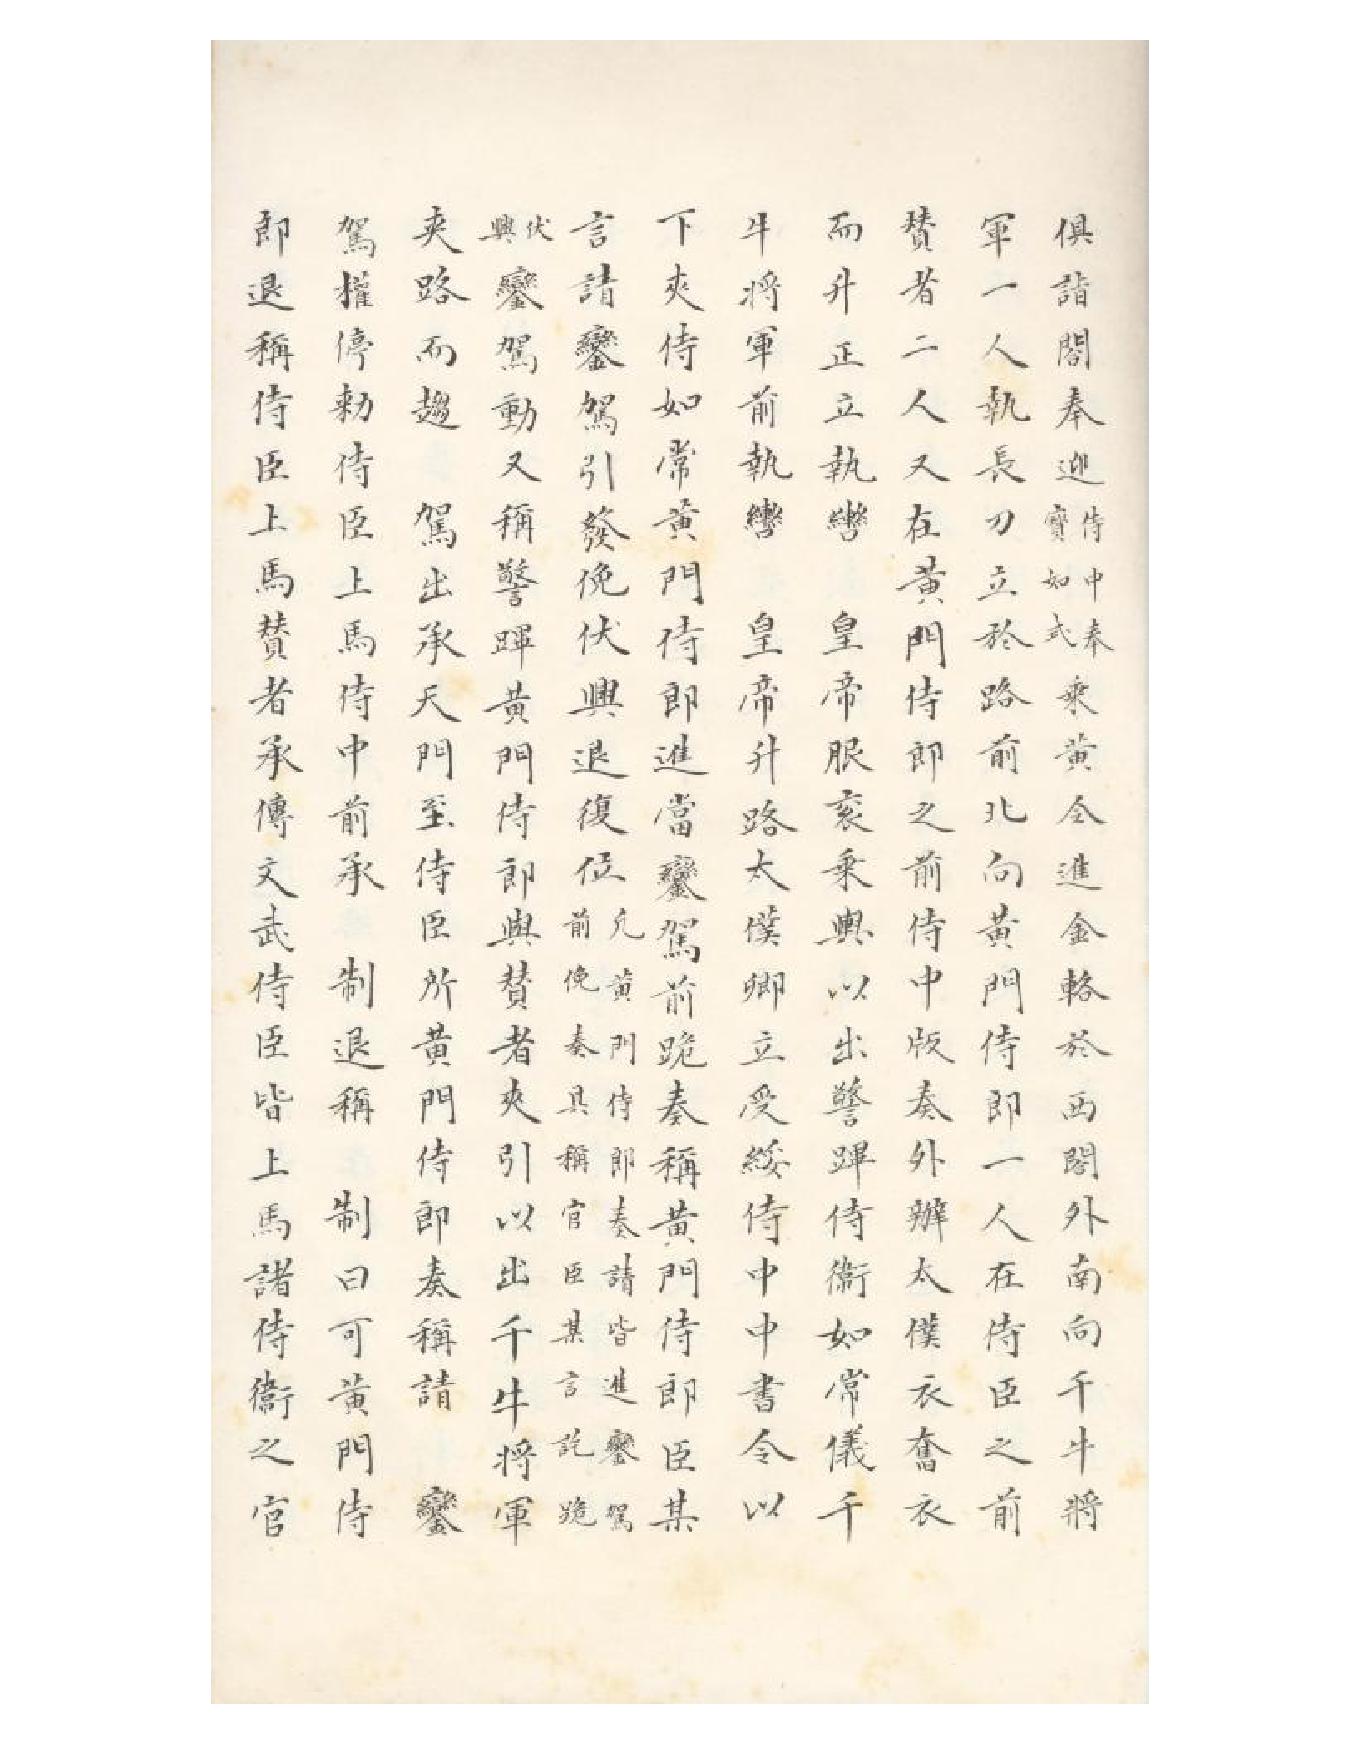 俱詣閤奉迎侍中奉寶如式乘黃令進金輅於西閤外南向千牛將
軍一人執長刀立於路前北向黃門侍郎一人在侍臣之前
贊者二人又在黃門侍郎之前侍中版奏外辦太僕衣奮衣
而升正立執轡　皇帝服袞乘輿以出警蹕侍衞如常儀千
牛將軍前執轡　皇帝升路太僕卿立受綏侍中中書令以
下夾侍如常黃門侍郎進當鑾駕前跪奏稱黃門侍郎臣某
言請鑾駕引發俛伏興退復位凡黃門侍郎奏請皆進鑾駕前俛奏具稱官臣某言訖跪
伏興鑾駕動又稱警蹕黃門侍郎與贊者夾引以出千牛將軍
夾路而趨　駕出承天門至侍臣所黃門侍郎奏稱請　鑾
駕權停勑侍臣上馬侍中前承　制退稱　制曰可黃門侍
郎退稱侍臣上馬贊者承傳文武侍臣皆上馬諸侍衞之官